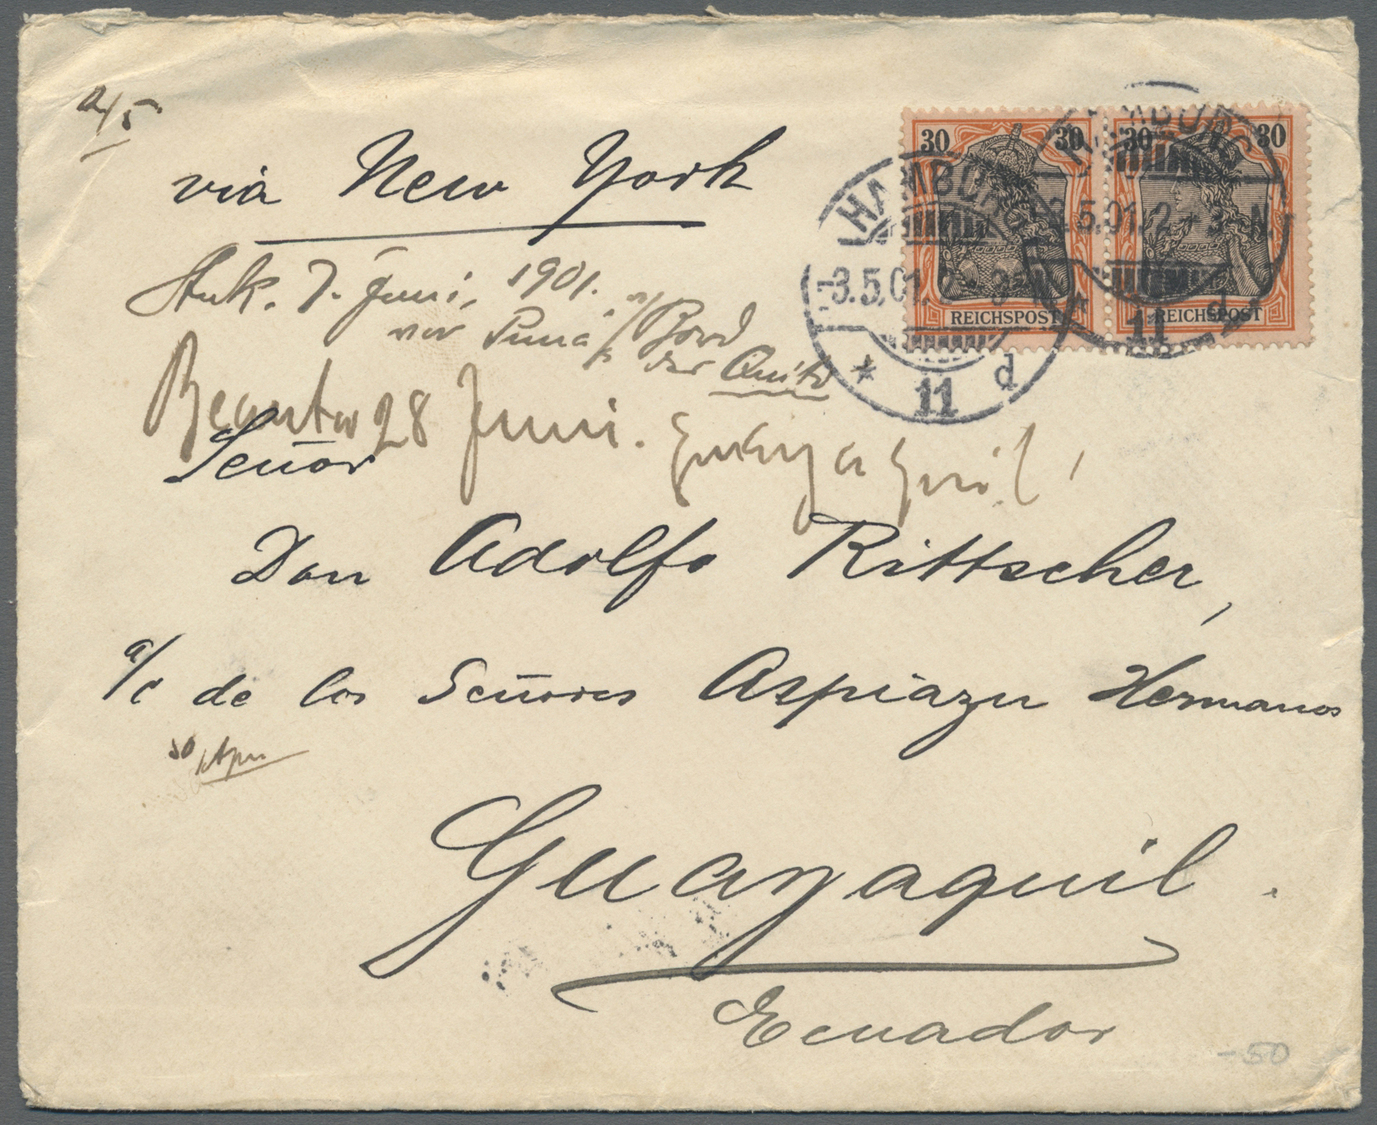 a/5
via New York
Ank. 7. Juni, 1901.
vor Puná a/Bord
der Quito
Beantw 28 Juni. Guayaquil
Señor
Don Adolfo Rittscher,
a/c de los Señores Aspiazu Hermanos
30 Apr
Guayaquil
Ecuador
-50
30 30
REICHSPOST
30 30
REICHSPOST
HAMBURG
-3.5.01. 2-3 N.
* 11 d
HAMBURG
-3.5.01. 2-3 N.
* 11 d